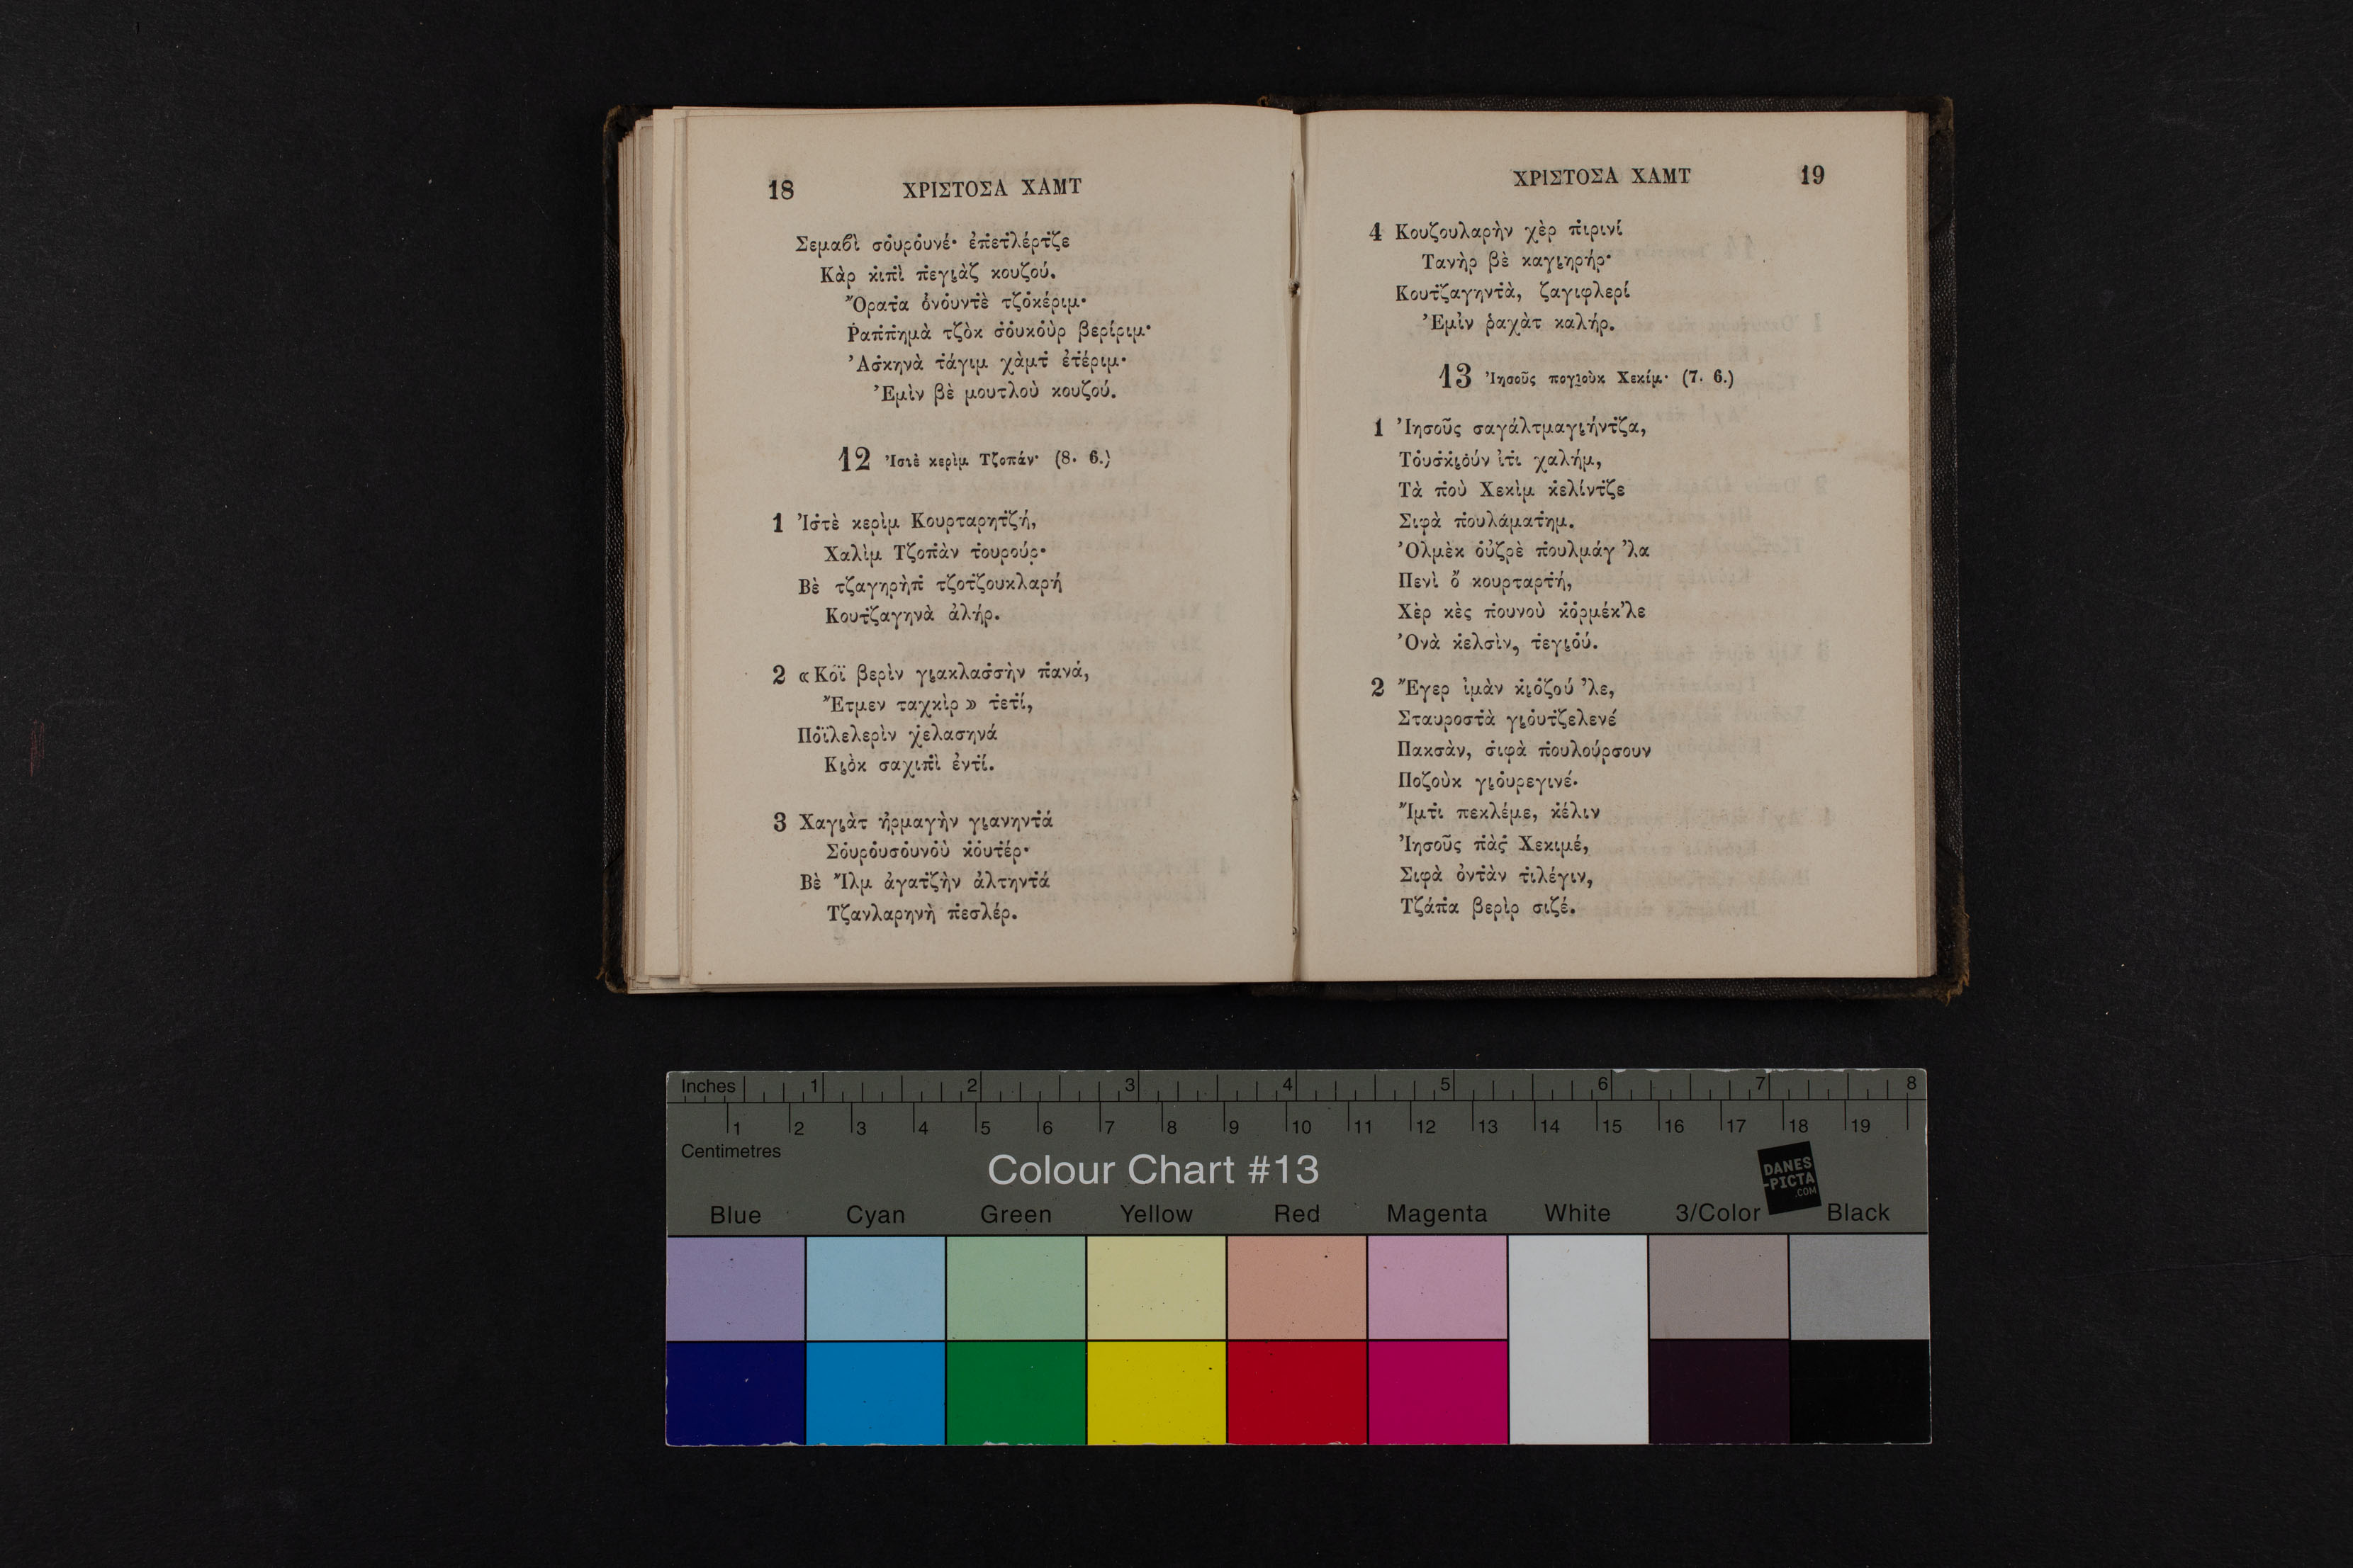 18 ΧΡΙΣΤΟΣΑ ΧΑΜΤ
Σεμαβὶ σὀυρὀυνέ· ἐπ̇ετ̇λέρτ̇ζε
Κὰρ κ̇ιπ̇ὶ π̇εγιὰζ κουζού.
Ὄρατ̇α ὀνὀυντ̇ὲ τζὀκέριμ·
Ῥαπ̇π̇ημὰ τζὸκ σ̇ὀυκὀὺρ βερίριμ·
Ἀσ̇κηνὰ τ̇άγιμ χὰμτ̇ ἐτ̇έριμ·
Ἐμὶν βὲ μουτλοὺ κουζού.
12 Ἰστὲ κερὶμ Τζοπάν· (8. 6.)
1 Ἰσ̇τὲ κερὶμ Κουρταρητ̇ζή,
Χαλὶμ Τζοπ̇ὰν τ̇ουρούρ·
Βὲ τζαγηρὴπ̇ τζοτ̇ζουκλαρή
Κουτ̇ζαγηνὰ ἀλήρ.
2 «Κόϊ βερὶν γιακλασ̇σὴν π̇ανά,
Ἔτμεν ταχκὶρ» τ̇ετ̇ί,
Πόϊλελερὶν χ̇ελασηνά
Κιὸκ σαχιπ̇ὶ ἐντ̇ί.
3 Χαγιὰτ ἠρμαγὴν γιανηντ̇ά
Σὀυρὀυσὀυνὀὺ κ̇ὀυτ̇έρ·
Βὲ Ἴλμ ἀγατ̇ζὴν ἀλτηντ̇ά
Τζανλαρηνὴ π̇εσλέρ.
ΧΡΙΣΤΟΣΑ ΧΑΜΤ 19
4 Κουζουλαρὴν χὲρ π̇ιρινί
Τανὴρ βὲ καγιηρήρ·
Κουτ̇ζαγηντ̇ὰ, ζαγιφλερί
Ἐμὶν ῥαχὰτ καλήρ.
13 Ἰησοῦς πογιοὺκ Χεκίμ· (7. 6.)
1 Ἰησοῦς σαγάλτμαγιήντ̇ζα,
Τὀυσ̇κιὀύν ἰτ̇ι χαλήμ,
Τὰ π̇οὺ Χεκὶμ κ̇ελίντ̇ζε
Σιφὰ π̇ουλάματ̇ημ.
Ὀλμὲκ ὀὐζρὲ π̇ουλμάγ ’λα
Πενὶ ὃ κουρταρτ̇ή,
Χὲρ κὲς π̇ουνοὺ κ̇ὀρμέκ’λε
Ὀνὰ κ̇ελσὶν, τ̇εγιὀύ.
2 Ἔγερ ἰμὰν κιὀζού ’λε,
Σταυροστ̇ὰ γιὀυτ̇ζελενέ
Πακσὰν, σ̇ιφὰ π̇ουλούρσουν
Ποζοὺκ γιὀυρεγινέ.
Ἴμτ̇ι πεκλέμε, κ̇έλιν
Ἰησοῦς π̇ὰς̇ Χεκιμέ,
Σιφὰ ὀντ̇ὰν τ̇ιλέγιν,
Τζάπ̇α βερὶρ σιζέ.
Inches 1 2 3 4 5 6 7 8
1 2 3 4 5 6 7 8 9 10 11 12 13 14 15 16 17 18 19
Centimetres
Colour Chart #13
DANES
-PICTA
.COM
Blue Cyan Green Yellow Red Magenta White 3/Color Black